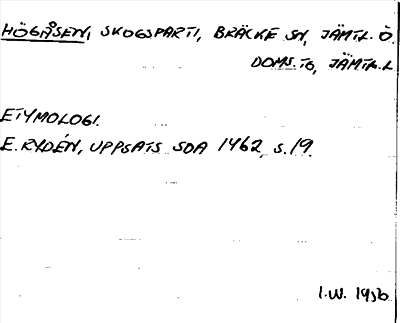 HÖGÅSEN, SKOGSPARTI, BRÄCKE SN, JÄMTL. Ö.
DOMS. TO, JÄMTL. L
ETYMOLOGI.
E. RYDÉN, UPPSATS SOA 1462, S. 19.
I.W. 1956